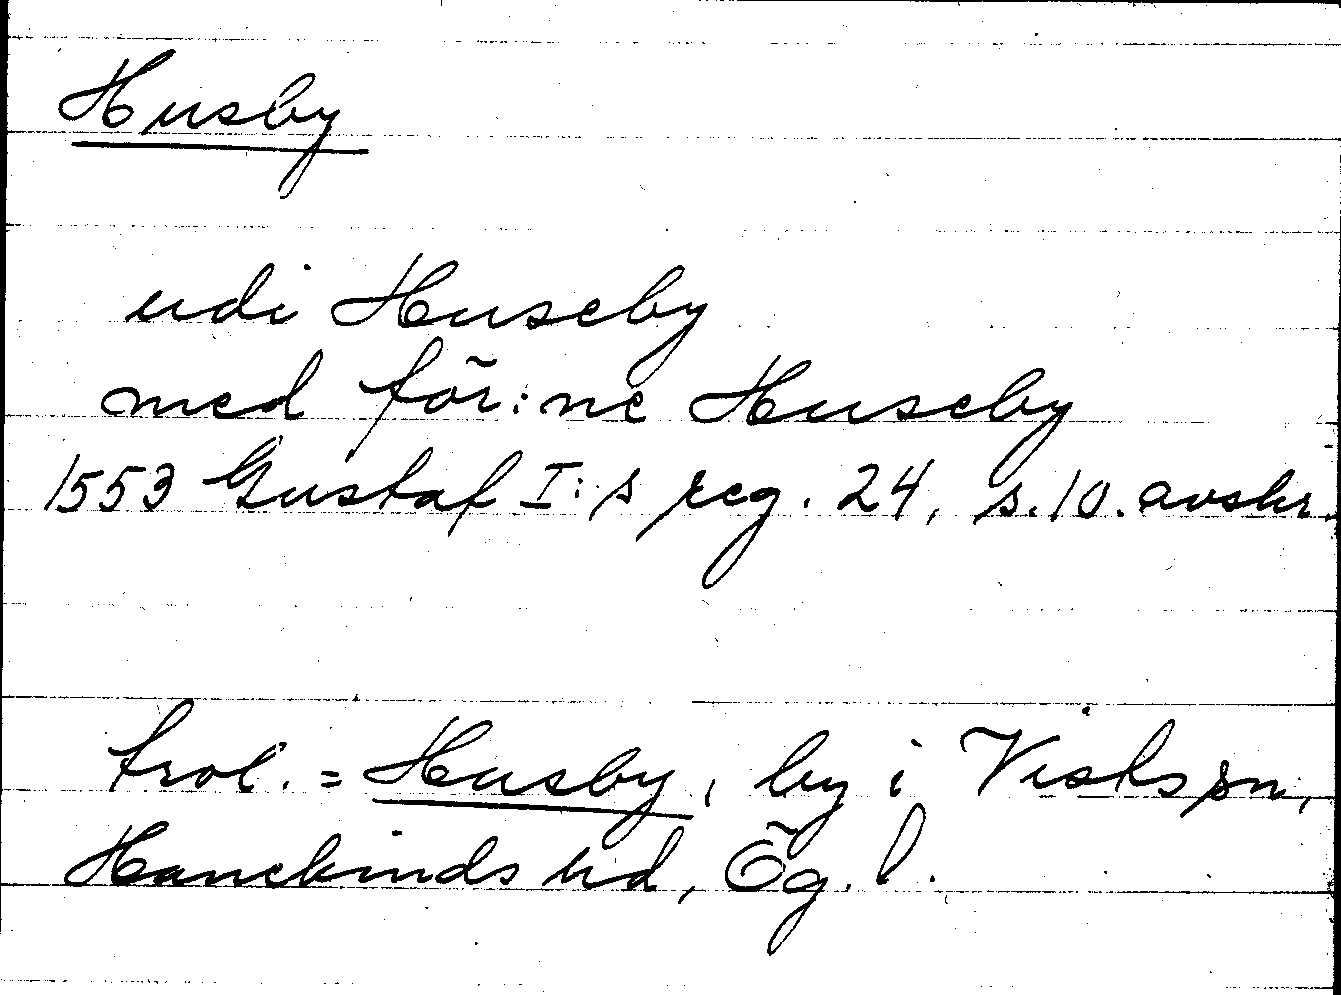 Husby
udi Huseby
med för:ne Huseby
1553 Gustaf I:s reg. 24, s. 10. avskr.
trol. = Husby, by i Vists sn,
Hanekinds hd, Ög. l.